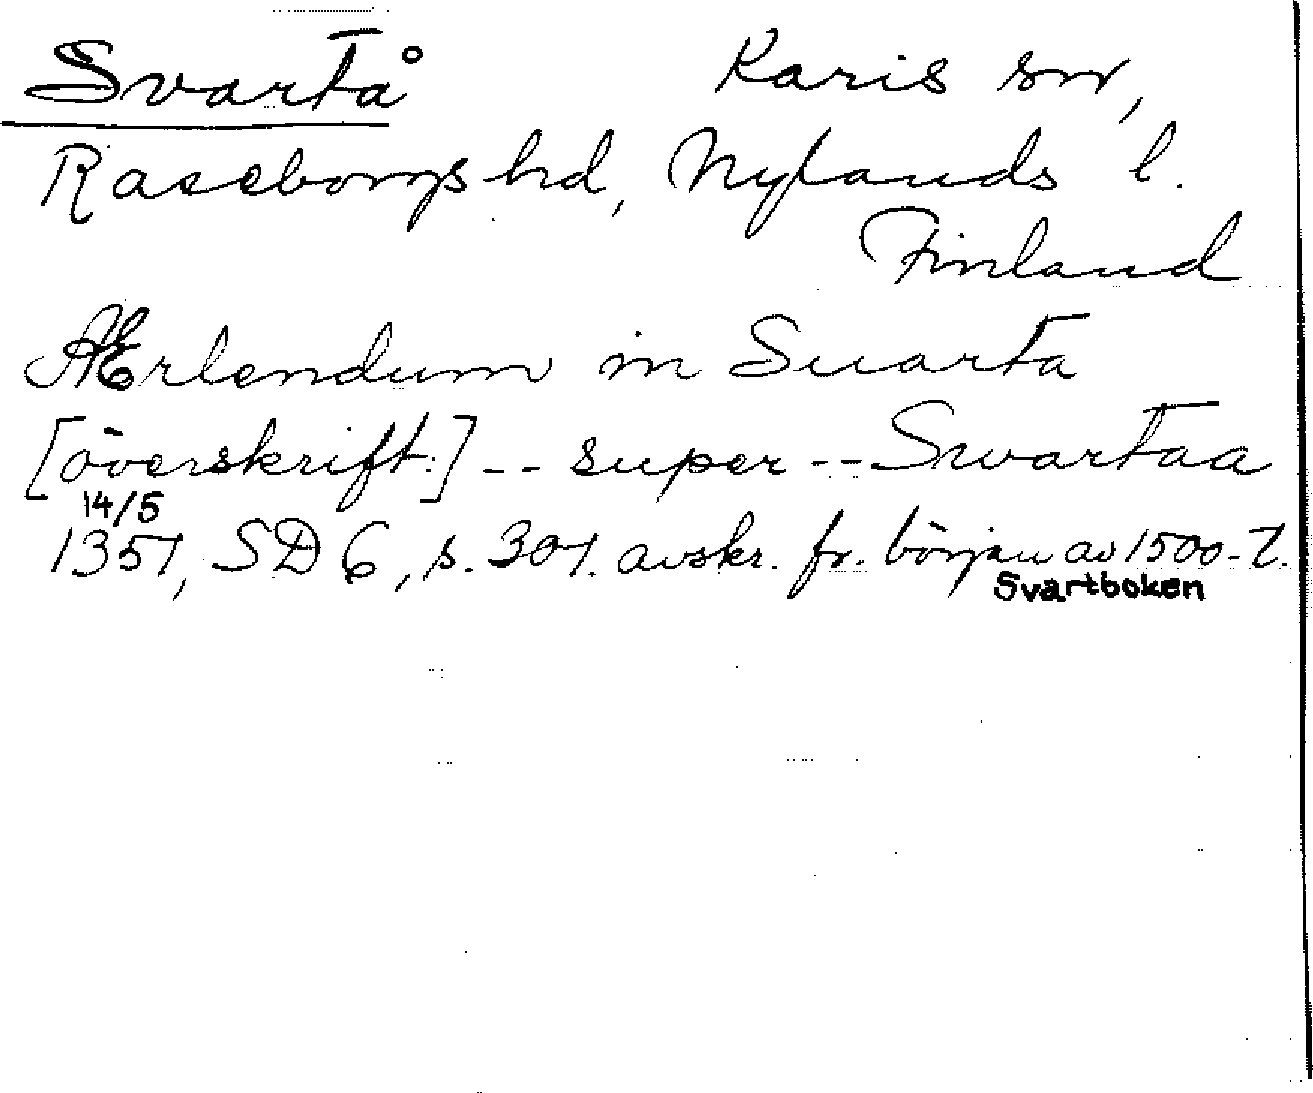 Svartå Karis sn,
Raseborgs hd, Nylands l.
Finland
Ærlendum in Suarta
[överskrift:] -- super -- Swartaa
14/5
1351, SD 6, s. 301. avskr. fr. början av 1500-t.
Svartboken